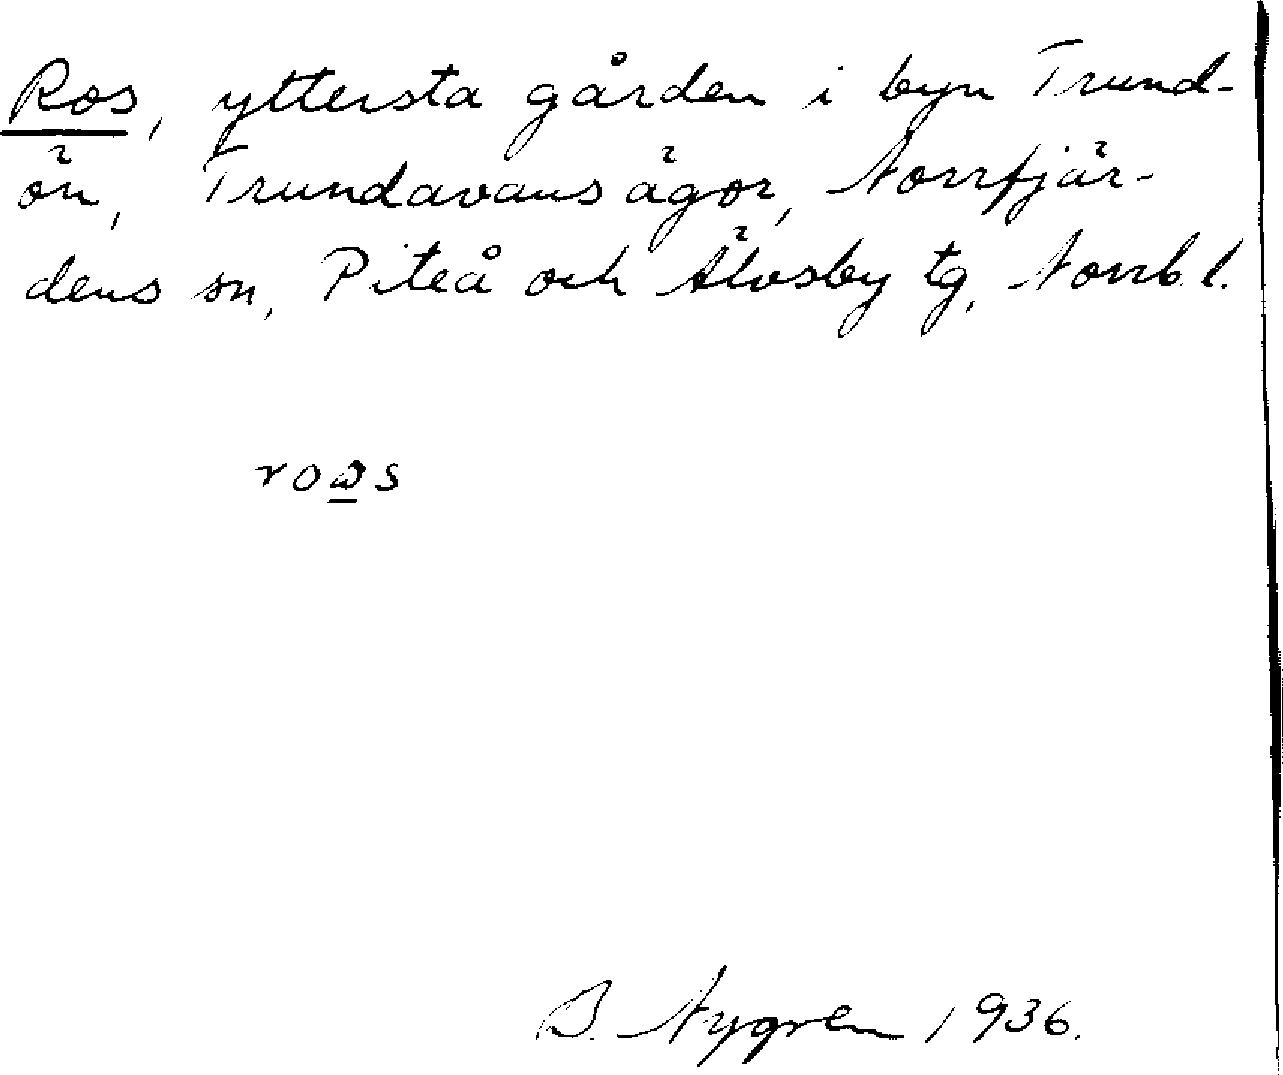 Ros, yttersta gården i byn Trund-
ön, Trundavans ägor, Norrfjär-
dens sn, Piteå och Älvsby tg, Norrb. l.
B. Nygren 1936.